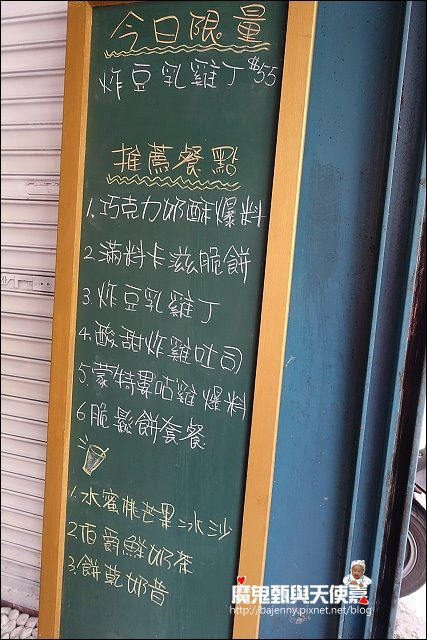 今日限量
炸豆乳雞丁$55
推薦餐點
1.巧克力奶酥爆料
2.滿料卡滋脆餅
3.炸豆乳雞丁
4.酸甜炸雞吐司
5.蒙特婁咕雞爆料
6.脆鬆餅套餐
1.水蜜桃芒果冰沙
2.伯爵鮮奶茶
3.餅乾奶昔
魔鬼甄與天使嘉
http://bajenny.pixnet.net/blog